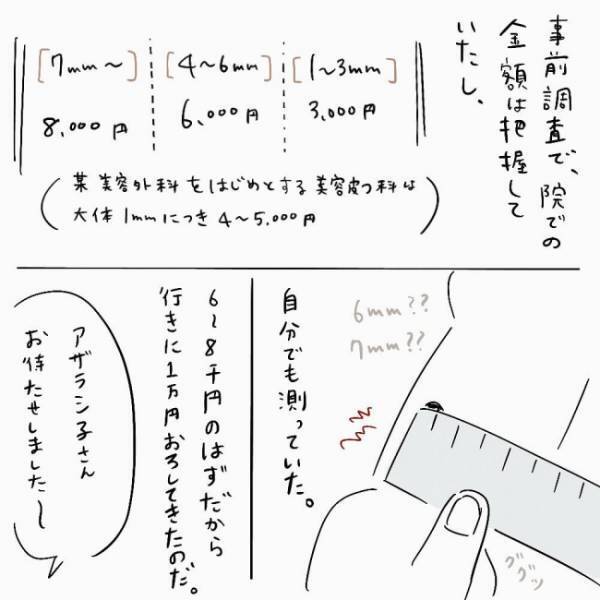 事前調査で、院での
金額は把握して
いたし、
[7mm〜] [4〜6mm] [1〜3mm]
8,000円 6,000円 3,000円
(某美容外科をはじめとする美容皮フ科は
大体1mmにつき4〜5,000円)
6mm??
7mm??
自分でも測っていた。
ググッ
6〜8千円のはずだから
行きに1万円おろしてきたのだ。
アザラシ子さん
お待たせしました〜